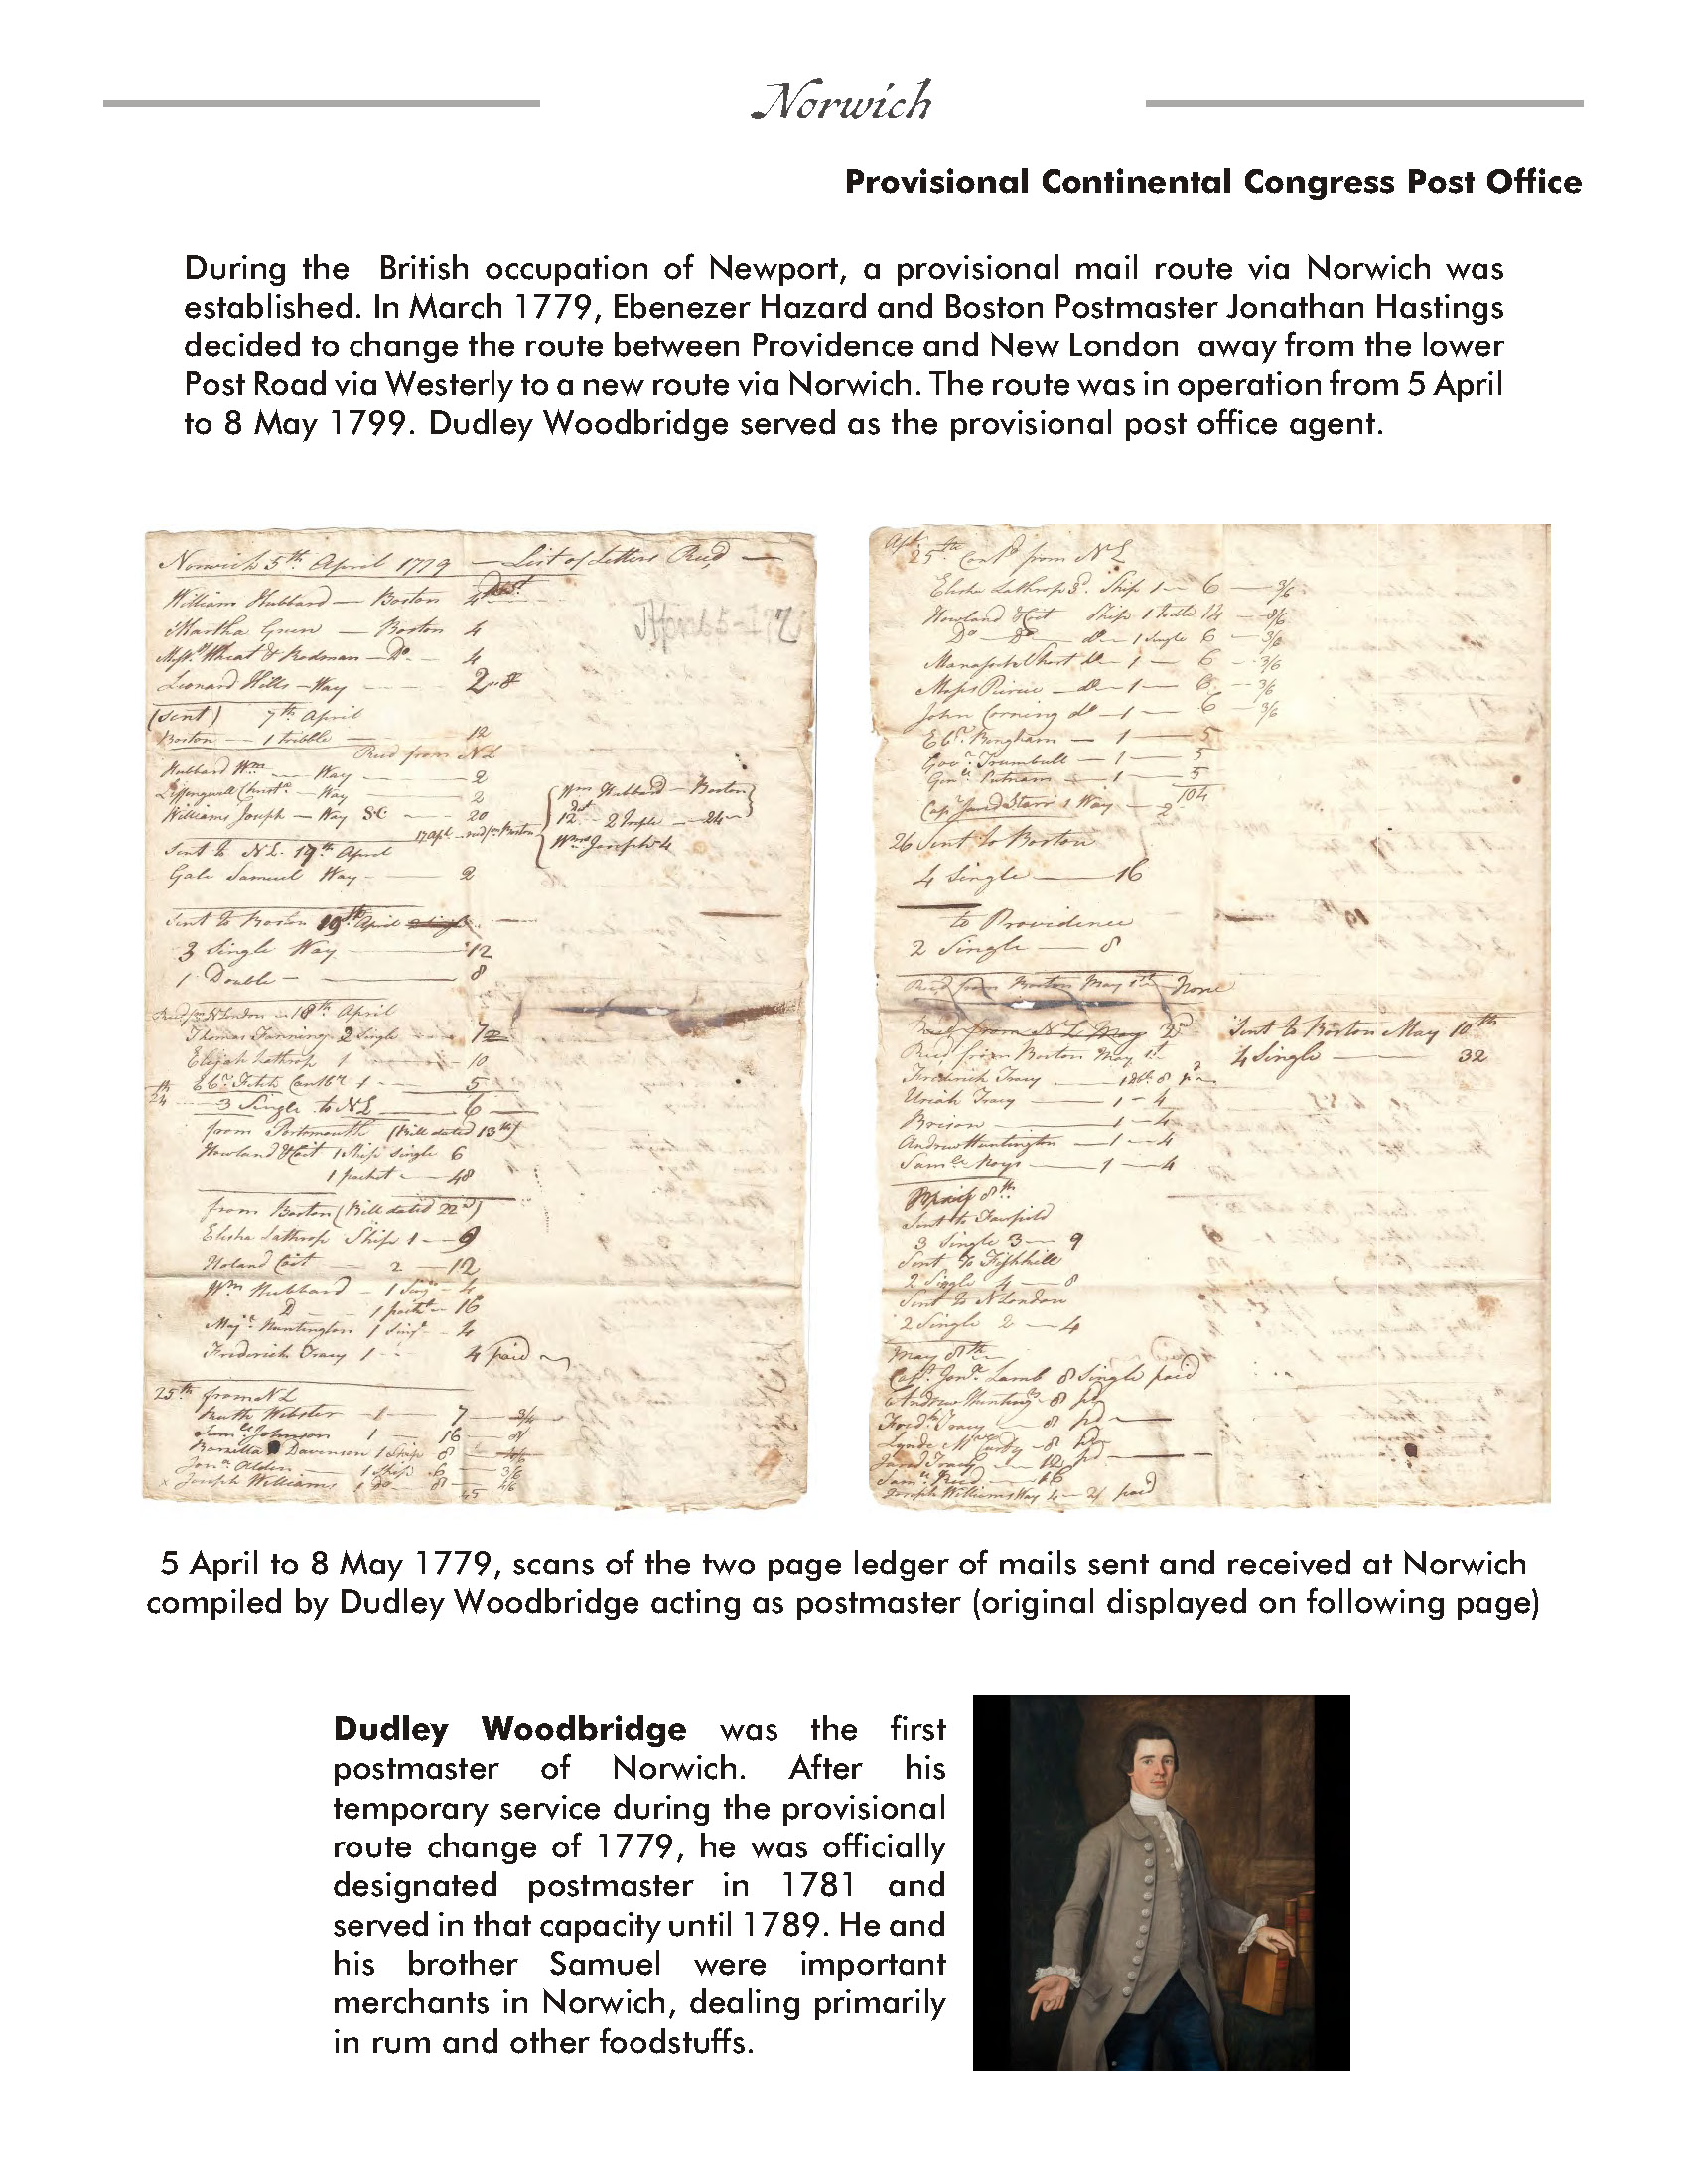 Norwich
Provisional Continental Congress Post Office
During the British occupation of Newport, a provisional mail route via Norwich was
established. In March 1779, Ebenezer Hazard and Boston Postmaster Jonathan Hastings
decided to change the route between Providence and New London away from the lower
Post Road via Westerly to a new route via Norwich. The route was in operation from 5 April
to 8 May 1799. Dudley Woodbridge served as the provisional post office agent.
Norwich 5th April 1779 — List of Letters Recd —
William Hubbard — Boston 4
Martha Green — Boston 4
Messrs Wheat & Rodman — Do — 4
Leonard Hills — Way — 2
April 5-177
(Sent) 7th April
Boston — 1 tribble — 12
Recd from NL
Hubbard Wm — Way — 2
Leffingwell Christr — Way — 2
Williams Joseph — Way SC — 20
17 Apl recd fm Boston
Wm Hubbard — Boston
12 — 2 Triple — 24
Wms Joseph 4
Sent to NL. 17th April
Gale Samuel Way — 2
Sent to Boston 19th April
3 Single Way — 12
1 Double — 8
Recd fm N London 18th April
Thomas Fanning 2 Single 7
Elijah Lathrop 1 — 10
Ebr Fitch 1 — 5
24th — 3 Single to NL — 6
from Portsmouth (Bill dated 13th)
Howland & Coit 1 Ship single 6
1 packet — 48
from Boston (Bill dated 22d)
Elisha Lathrop Ship 1 — 9
Holand Coit — 2 — 12
Wm Hubbard — 1 Sing — 4
D — 1 packt — 16
Majr Huntington 1 Singl — 4
Frederick Tracy 1 — 4 paid
25th from NL
Ruth Webster — 1 — 7 —
Saml Johnson 1 — 16 —
Barzilla Davenson 1 Ship 8
Jona Alden — 1 Ship 6 — 3/6
x Joseph Williams 1 Do — 8 — 4/6
45
Apl 25th Contd from NL
Elisha Lathrop 3d. Ship 1 — 6 — 3/6
Howland & Coit Ship 1 Treble 14 — 8/6
Do — Do — do — 1 Single 6 — 3/6
Short do — 1 — 6 — 3/6
Moses Pierce — do — 1 — 6 — 3/6
John Corning do — 1 — 6 — 3/6
Ebr Bingham — 1 — 5
Govr Trumbull — 1 — 5
Genl Putnam — 1 — 5
104
Capt Jared Starr 1 Way — 2
26 Sent to Boston
4 Single — 16
to Providence
2 Single — 8
Recd from Boston May 1st None
Recd from NL May 2d
Recd from Boston May 1st
Frederick Tracy — 1 dbl 8
Uriah Tracy — 1 - 4
Brison — 1 - 4
Andrew Huntington — 1 — 4
Saml Noys — 1 — 4
Sent to Boston May 10th
4 Single — 32
May 8th
Sent to Fairfield
3 Single 3 — 9
Sent to Fishkill
2 Single 4 — 8
Sent to N London
2 Single 2 — 4
May 8th
Capt Jona Lamb 8 Single paid
Andrew Hunting 8 pd
Fredk Tracy — 8 pd
Lynde McCurdy — 8 pd
Jared Tracy — 12 pd
Saml Reed — 16
Joseph Williams Way 4 — 24 paid
5 April to 8 May 1779, scans of the two page ledger of mails sent and received at Norwich
compiled by Dudley Woodbridge acting as postmaster (original displayed on following page)
Dudley Woodbridge was the first
postmaster of Norwich. After his
temporary service during the provisional
route change of 1779, he was officially
designated postmaster in 1781 and
served in that capacity until 1789. He and
his brother Samuel were important
merchants in Norwich, dealing primarily
in rum and other foodstuffs.